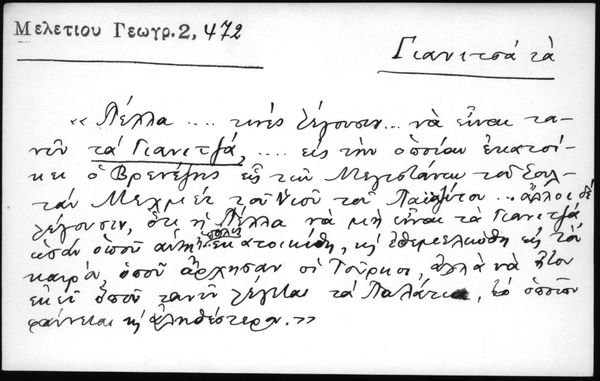 Μελετίου Γεωγρ. 2, 472
Γιανιτσά τὰ
«Πέλλα .... τινὲς λέγουσιν... νὰ εἶναι τα-
νῦν τὰ Γιανιτζά, .... εἰς τὴν ὁποίαν ἐκατοί-
κει ὁ Βρενέζης εἷς τῶν Μεγιστάνων τοῦ Σουλ-
τὰν Μεχμὲτ τοῦ Υἱοῦ τοῦ Παϊαζήτου ... ἄλλοι δὲ
λέγουσιν, ὅτι ἡ Πέλλα νὰ μὴ εἶναι τὰ Γιανιτζά
ὡσὰν ὁποῦ αὐτὴ ἡ πόλις ἐκατοικήθη, κὴ ἐθεμελιώθη εἰς τὸν
καιρὸν, ὁποῦ ἄρχησαν οἱ Τοῦρκοι, ἀλλὰ νὰ ἦτον
ἐκεῖ ὁποῦ τανῦν λέγεται τὰ Παλάτια, τὸ ὁποῖον
φαίνεται κὴ ἀληθέστερον.»